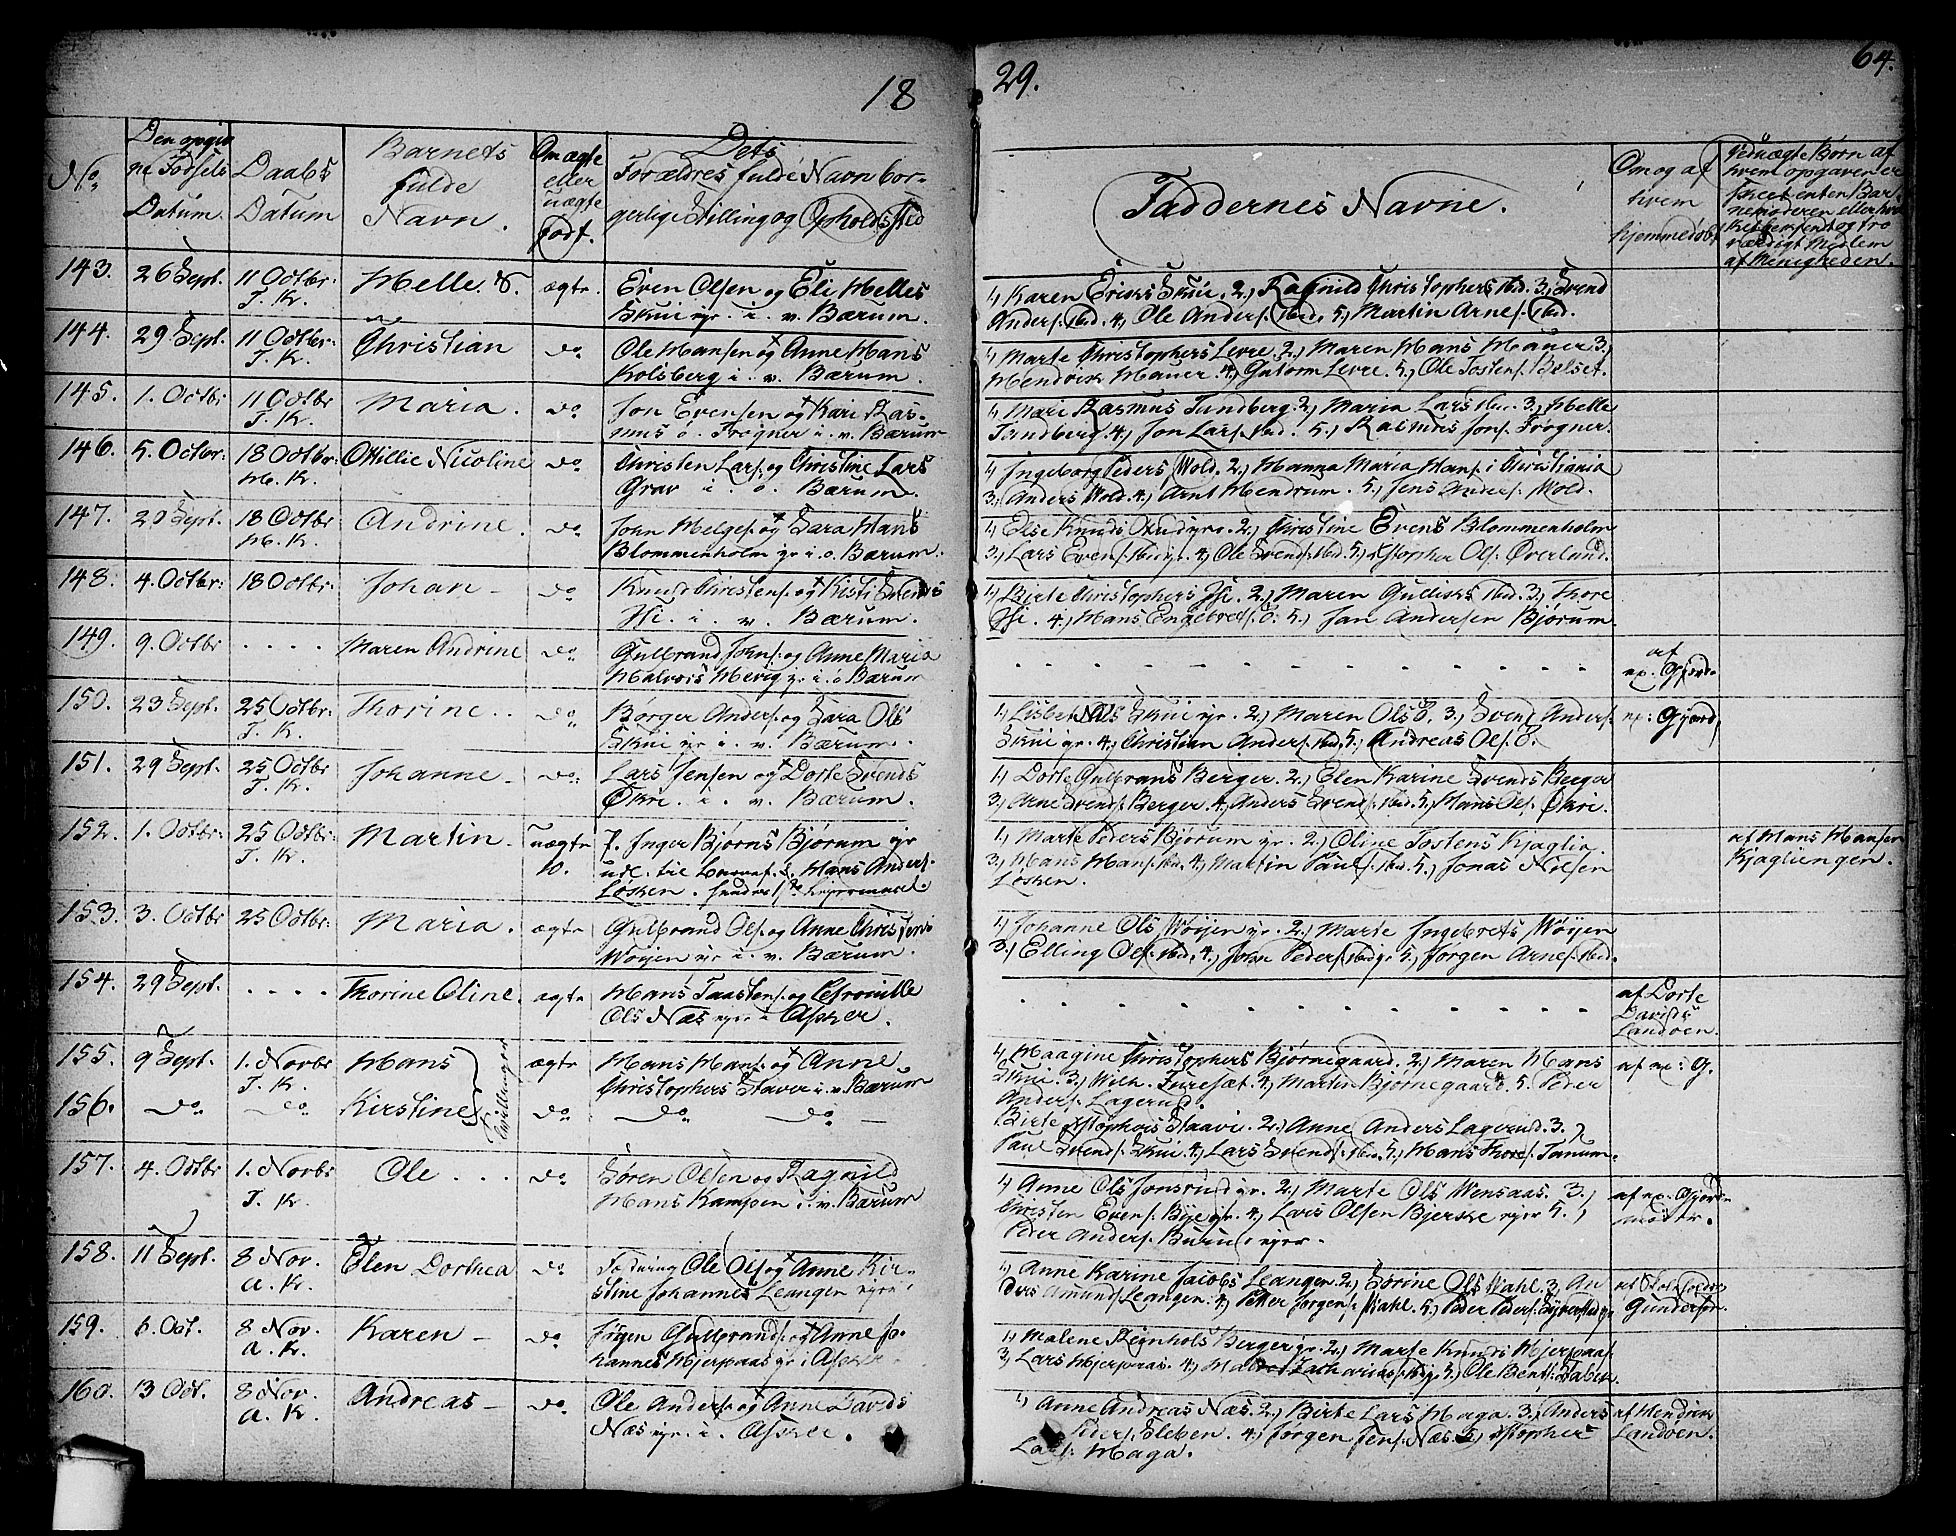 18 29. 64.
No.
Den opgiv
ne Fødsels
Datum.
Daabs
Datum
Barnets
fulde
Navn.
Om ægte
eller
uægte
født.
Dets
Forældres fulde Navn bor-
gerlige Stilling og Opholdssted
Faddernes Navne.
Om og af
hvem
hjemmedøbt
Ved uægte Børn af
hvem opgaven er
skeet enten Bar-
nemoderen eller
bekjendt og tro
værdigt Medlem
af Menigheden.
143. 26 Sept. 11 Octbr: T. K. Helle. ægte. Even Olsen og Eli Helles
Skui i. v. Bærum.
1, Karen Eriks Skui. 2, Ragnild Christophers ibd. 3, Svend
Anders. ibd. 4, Ole Anders. ibd. 5, Martin Arnes. ibd.
144. 29 Sept. 11 Octbr: T. K. Christian do Ole Hansen og Anne Hans
Kolsberg i. v. Bærum.
1, Marte Christophers Levre. 2, Maren Hans Hauer 3,
Hendrik Hauer. 4, Gutorm Levre. 5, Ole Tostens. Belset.
145. 1. Octbr 11 Octbr T. K. Maria. do Jon Evensen og Kari Ras-
mus ø. Frogner i. v. Bærum
1, Mari Rasmus Tandberg. 2, Maria Lars ibd. 3, Helle
Tandberg. 4, Jon Lars. ibd. 5, Rasmus Jons. Frogner.
146. 5. Octbr: 18 Octbr: H. K. Ottillie Nicoline do Christen Lars. og Christine Lars
Grav i. ø. Bærum.
1, Ingeborg Peders Wold. 2, Hanna Maria Hans. i Christiania
3, Anders Wold. 4, Arnt Hendrum. 5, Jens Anders. Wold.
147. 20 Sept. 18 Octbr H. K. Andrine. do John Helges. og Sara Hans
Blommenholm i. ø. Bærum.
1, Else Knuds 2, Christine Evens Blommenholm
3, Lars Evens. ibd. 4, Ole Svends. ibd. 5, Ols. Øverland.
148. 4. Octbr: 18 Octbr Johan - do Knud Christens. og Kisti Svends
i. v. Bærum.
1, Birte Christophers 2, Maren Gulliks ibd. 3, Thore
4, Hans Engebreds. ø: 5, Jan Andersen Bjørum
149. 9. Octbr .... Maren Andrine do Gulbrand Johns. og Anne Maria
Halvors i. ø Bærum
af
Gjord-
150. 23 Sept. 25 Octbr: T. K. Thorine.. do Børger Anders. og Sara Ols
Skui i. v. Bærum.
1, Lisbet Nils Skui 2, Maren Ols ø. 3, Svend Anders.
Skui 4, Christian Anders. ibd. 5, Andreas Ols. ø.
Gjord.
151. 29 Sept. 25 Octbr T. K. Johanne - do: Lars Jensen og Dorte Svends
Økre. i. v. Bærum.
1, Dorte Gulbrans Berger. 2, Elen Karine Svends Berger
3, Arne Svends. Berger. 4, Anders Svends. ibd. 5, Hans Ols. Økri.
152. 1. Octbr: 25 Octbr: T. K. Martin. uægte 10. Inger Bjørns Bjørum
udl. til Hans Anders.
Løsken.
1, Marte Peders Bjørum 2, Oline Tostens Kjaglia.
3, Hans Hans. ibd. 4, Martin Pauls. ibd. 5, Jonas Nilsen
Løsken.
af Hans Hansen
Kjagliengen.
153. 3. Octbr 25 Octbr: Maria. ægte Gulbrand Ols. og Anne
Wøyen i. v. Bærum.
1, Johanne Ols Wøyen 2, Marte Ingebrets Wøyen
3, Elling Ols. ibd. 4, John Peders. ibd 5, Jørgen Arnes. ibd.
154. 29 Sept. .... Thorine Oline. ægte Hans Taastens. og
Ols Næs i Asker.
af Dorte
Davids
Landøen.
155. 9 Sept. 1. Novbr T. K. Hans ægte Hans Hans. og Anne
Christophers Staver i. v. Bærum
1, Haagine Christophers Bjørnegaard. 2, Maren Hans
Skui. 3, Wilh. Furesæt. 4, Martin Bjørnegaard. 5. Peder
Anders. Lagerud.
af G.
156. do. do. Kirstine do. do. do. -
Tvillinger
Birte Staavi. 2, Anne Anders Lagerud. 3,
Paul Svends. Skui. 4, Lars Svends. ibd. 5, Hans Thors. Tanum.
157. 4. Octbr 1. Novbr T. K. Ole ... do. Søren Olsen og Ragnild
Hans Kampen i. v. Bærum
1, Anne Ols Jonsrud 2, Marte Ols Wensaas. 3,
Christen Evens. Bye 4, Lars Olsen Bjerske 5,
Peder Anders.
af Gjord-
moder.
158. 11 Sept. 8 Nov. a. K. Elen Dorthea do Ole Ols. og Anne Kir-
stine Johannes Leangen
1, Anne Karine Jacobs Leangen. 2, Sørine Ols Wahl. 3, An
ders Amunds. Leangen. 4, Petter Jørgens. Wahl. 5, Peder Peders.
Gunders.
159. 6 Oct. 8 Nov. a. K. Karen - do Jørgen Gulbrands. og Anne Jo-
hannes Hjerpaas i Asker.
1, Malene Reinhols Berger 2, Marte Knuds Hjerpaas
3, Lars Hjerpaas. 4, Zacharias. 5, Ole Bents.
160. 13 Oct. 8 Nov. a. K. Andreas - do. Ole Anders. og Anne Davids
Næs i. Asker.
1, Anne Andreas Næs. 2, Birte Lars Haga. 3, Anders
Peders. Sleben. 4, Jørgen Jens. Næs. 5,
Lars. Haga.
af Hendrik
Landøen.